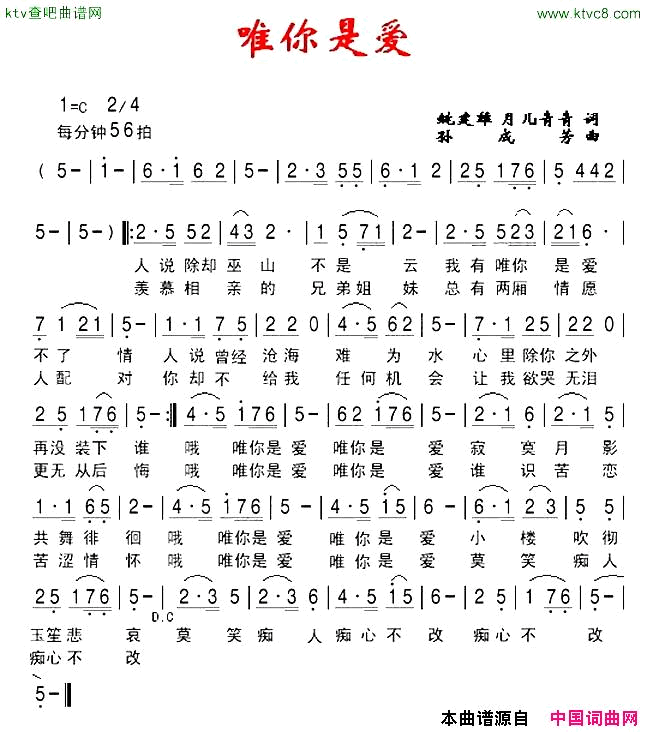 ktv查吧曲谱网
www.ktvc8.com
唯你是爱
1=C 2/4
每分钟56拍
姚建雄 月儿青青 词
孙成芳 曲
( 5 - | 1 - | 6·1 6 2 | 5 - | 2·3 5 5 | 6·1 2 | 2 5 1 7 6 | 5 4 4 2 |
5 - | 5 - ) |: 2·5 5 2 | 4 3 2· | 1 5 7 1 | 2 - | 2·5 5 2 3 | 2 1 6· |
人说除却巫山 不是 云我有唯你 是爱
羡慕相 亲的 兄弟姐 妹总有两厢 情愿
7 1 2 1 | 5 - | 1·1 7 5 | 2 2 0 | 4·5 6 2 | 5 - | 7·1 2 5 | 2 2 0 |
不了 情人说曾经沧海 难 为 水心里除你之外
人配 对你却不 给我 任何机 会让我欲哭无泪
2 5 1 7 6 | 5 - :| 4·5 1 7 6 | 5 - | 6 2 1 7 6 | 5 - | 6·1 2 5 | 2·1 5 |
再没装下 谁哦 唯你是爱 唯你是 爱寂寞月影
更无从后 悔哦 唯你是爱 唯你是 爱谁 识苦恋
1·1 6 5 | 2 - | 4·5 1 7 6 | 5 - | 4·5 1 5 | 6 - | 6·1 2 3 | 5·5 |
共舞徘 徊哦 唯你是爱 唯你 是 爱小楼吹彻
苦涩情 怀哦 唯你是爱 唯你 是 爱莫笑痴人
2 5 1 7 6 | 5 - | 2·3 5 | 2·3 6 | 4·5 5 1 | 6 - | 2 5 1 7 6 | 5 - |
D.C
玉笙悲 哀莫笑痴 人痴心不 改痴心不 改
痴心不 改
5 - ‖
本曲谱源自 中国词曲网